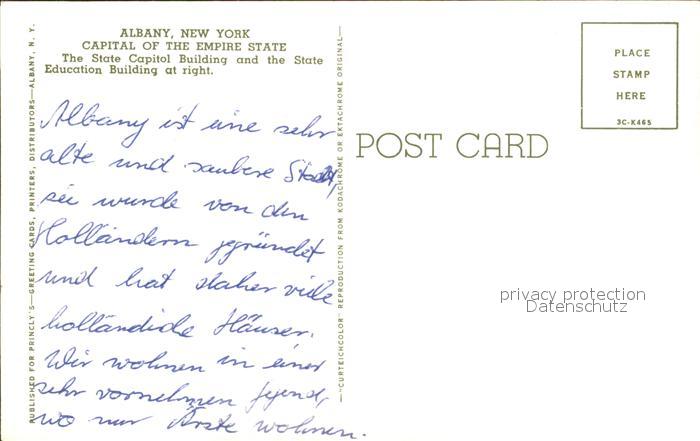 ALBANY, NEW YORK
CAPITAL OF THE EMPIRE STATE
The State Capitol Building and the State
Education Building at right.
Albany ist eine sehr
alte und saubere Stadt,
sie wurde von den
Holländern gegründet
und hat daher viele
holländische Häuser.
Wir wohnen in einer
sehr vornehmen Gegend,
wo nur Ärzte wohnen.
PUBLISHED FOR PRINCLY'S—GREETING CARDS, PRINTERS, DISTRIBUTORS—ALBANY, N. Y.
—"CURTEICHCOLOR" REPRODUCTION FROM KODACHROME OR EKTACHROME ORIGINAL—
POST CARD
PLACE
STAMP
HERE
3C-K465
privacy protection
Datenschutz